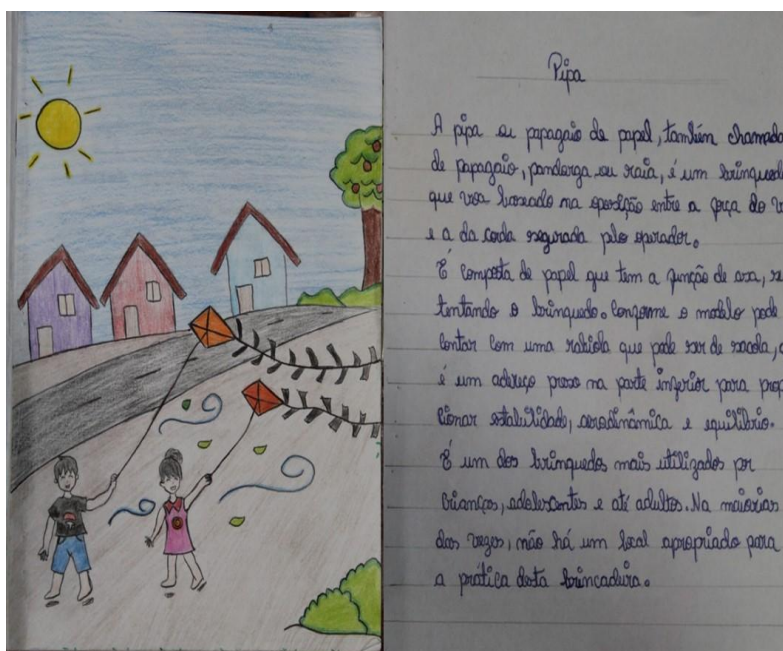 Pipa
A pipa ou papagaio de papel, também chamada
de papagaio, pandorga ou raia, é um brinquedo
que voa baseado na oposição entre a força do
e a da corda segurada pelo operador.
É composta de papel que tem a função de asa,
tentando o brinquedo. Conforme o modelo pode
contar com uma rabiola que pode ser de sacola,
é um adereço preso na parte inferior para
cionar estabilidade, aerodinâmica e equilíbrio.
É um dos brinquedos mais utilizados por
crianças, adolescentes e até adultos. Na maiorias
das vezes, não há um local apropriado para
a prática desta brincadeira.